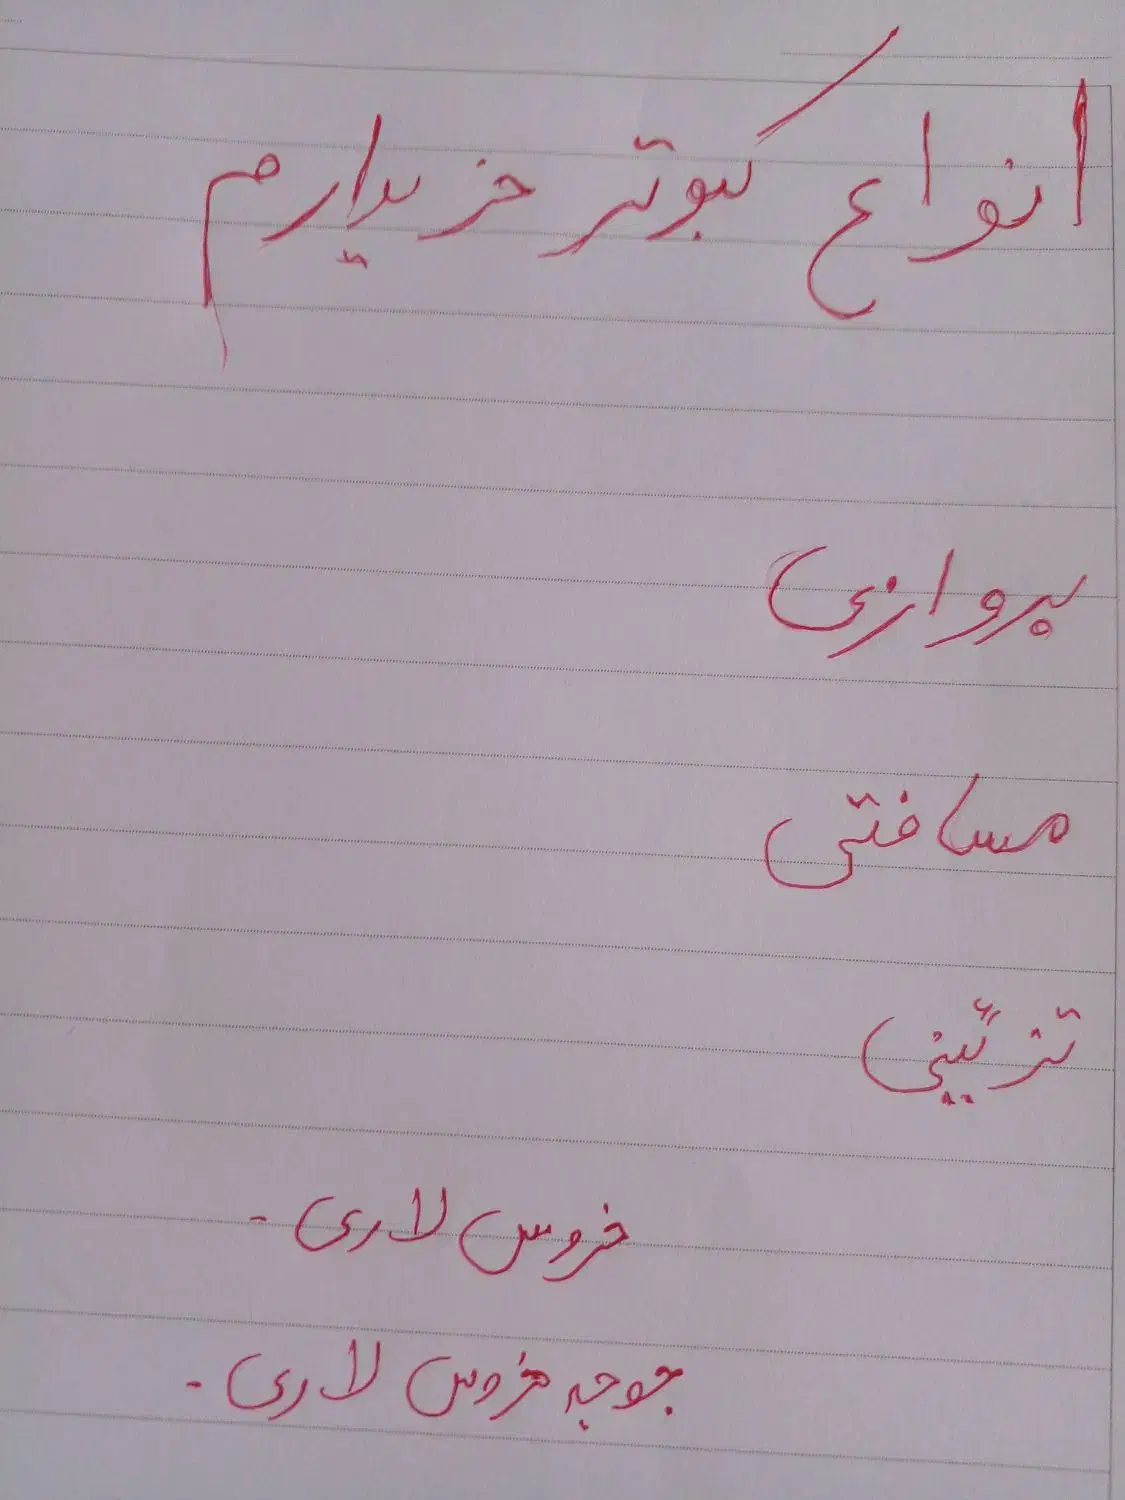 انواع کبوتر خریدارم
پروازی
مسافتی
تزئینی
خروس لاری -
جوجه خروس لاری -